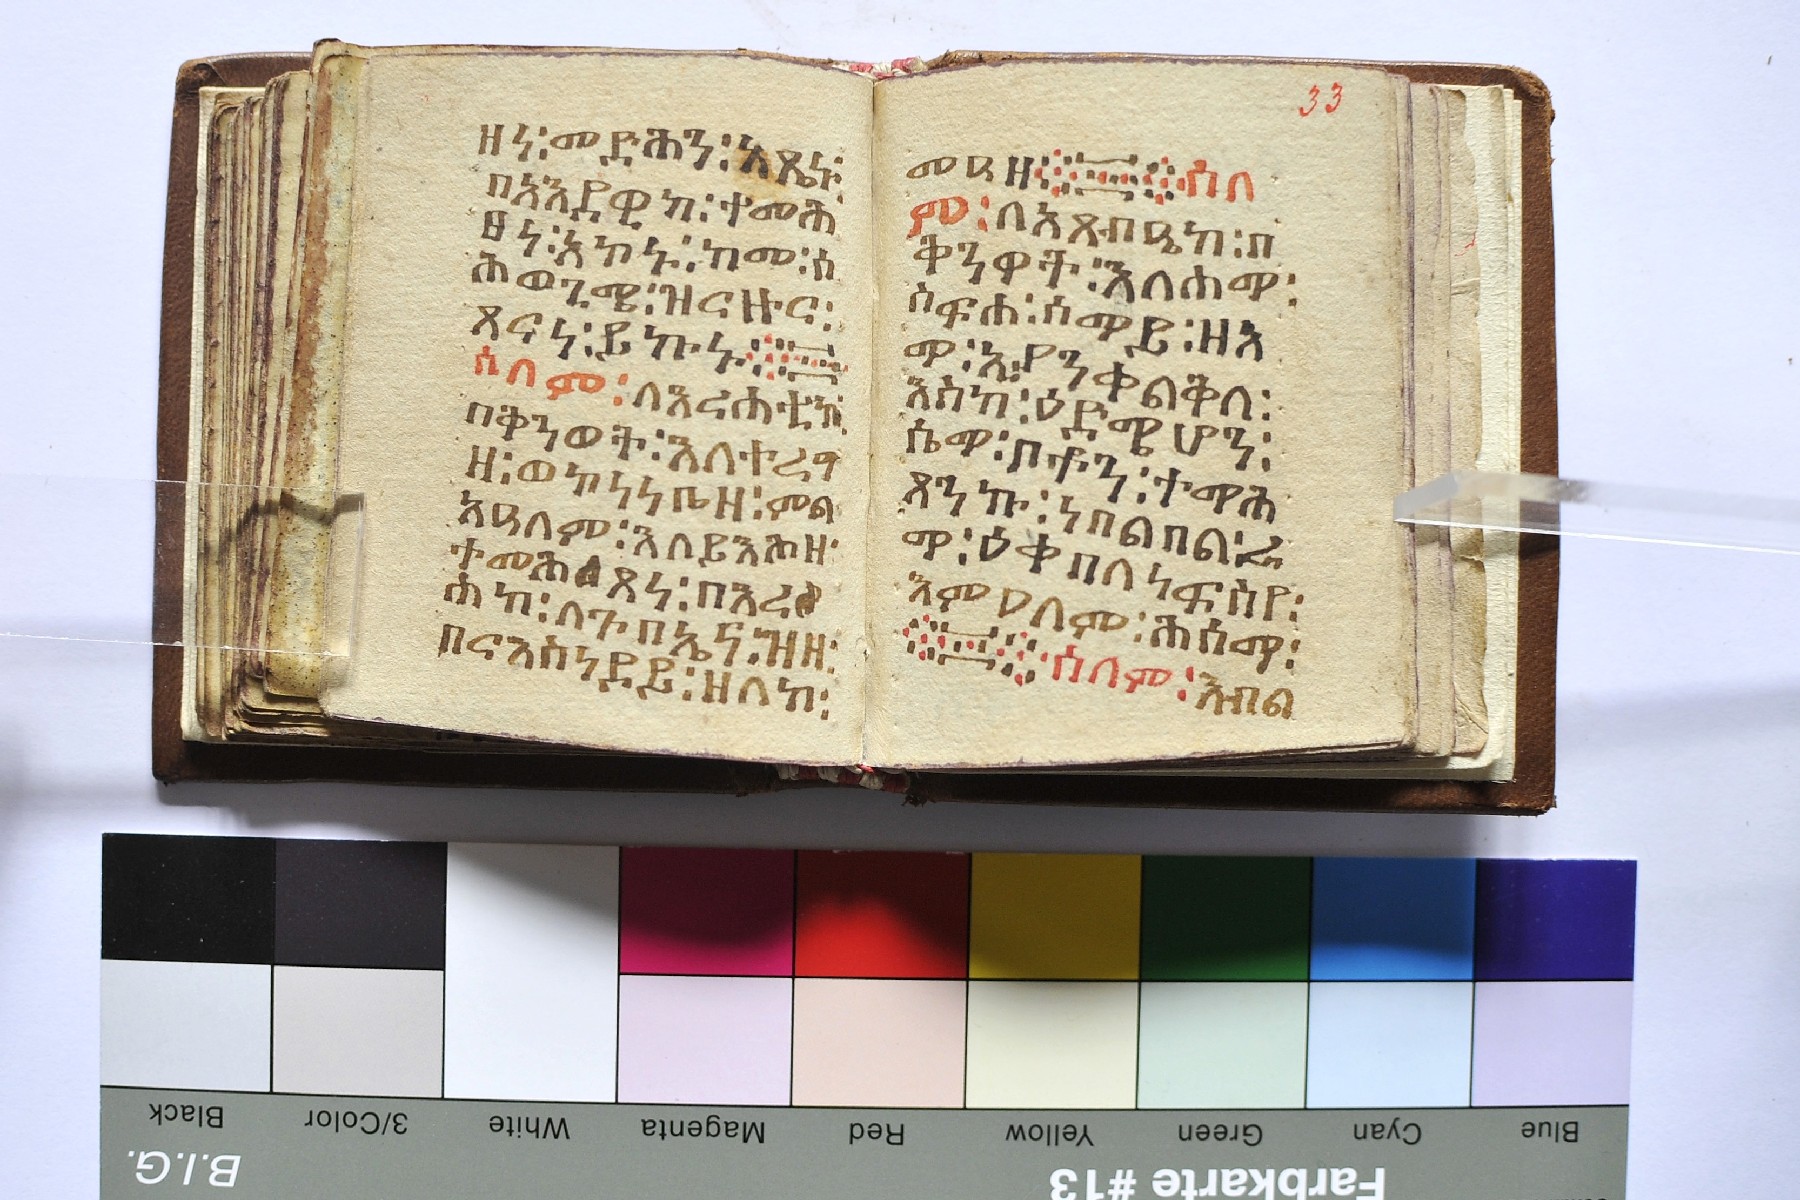 ዘነ፡መድሕን፡አጼነ፡
በእእደዊከ፡ተመሕ
ፀነ፡አኮኑ፡ከመ፡ሰ
ሕወጊሜ፡ዝናዙና፡
ጸናነ፡ይኩኑ
ሰላም፡ለእራሐቲከ
በቅንወት፡እለተረግ
ዘ፡ወኮነነቤዘ፡ምል
አዳለም፡እለይእሕዘ
ተመሕጸነ፡በእራ
ሐከ፡ለጉበኤና፡ዝዘ፡
በናእስነደይ፡ዘለከ፡
33
መዳዘ ሰላ
ም፡ለአጻብዒከ፡በ
ቅንዋት፡እለሐማ፡
ስፍሐ፡ሰማይ፡ዘእ
ማ፡አዖንቀልቅለ፡
እስከ፡ዕድሜሆን፡
ሴማ፡በቶን፡ተማሕ
ጸንኩ፡ነበልባል፡ራ
ማ፡ዕቀበለነፍስየ፡
እምዐለም፡ሕሰማ፡
ሰላም፡እብል
Black
3/Color
White
Magenta
Red
Yellow
Green
Cyan
Blue
B.I.G.
Farbkarte #13